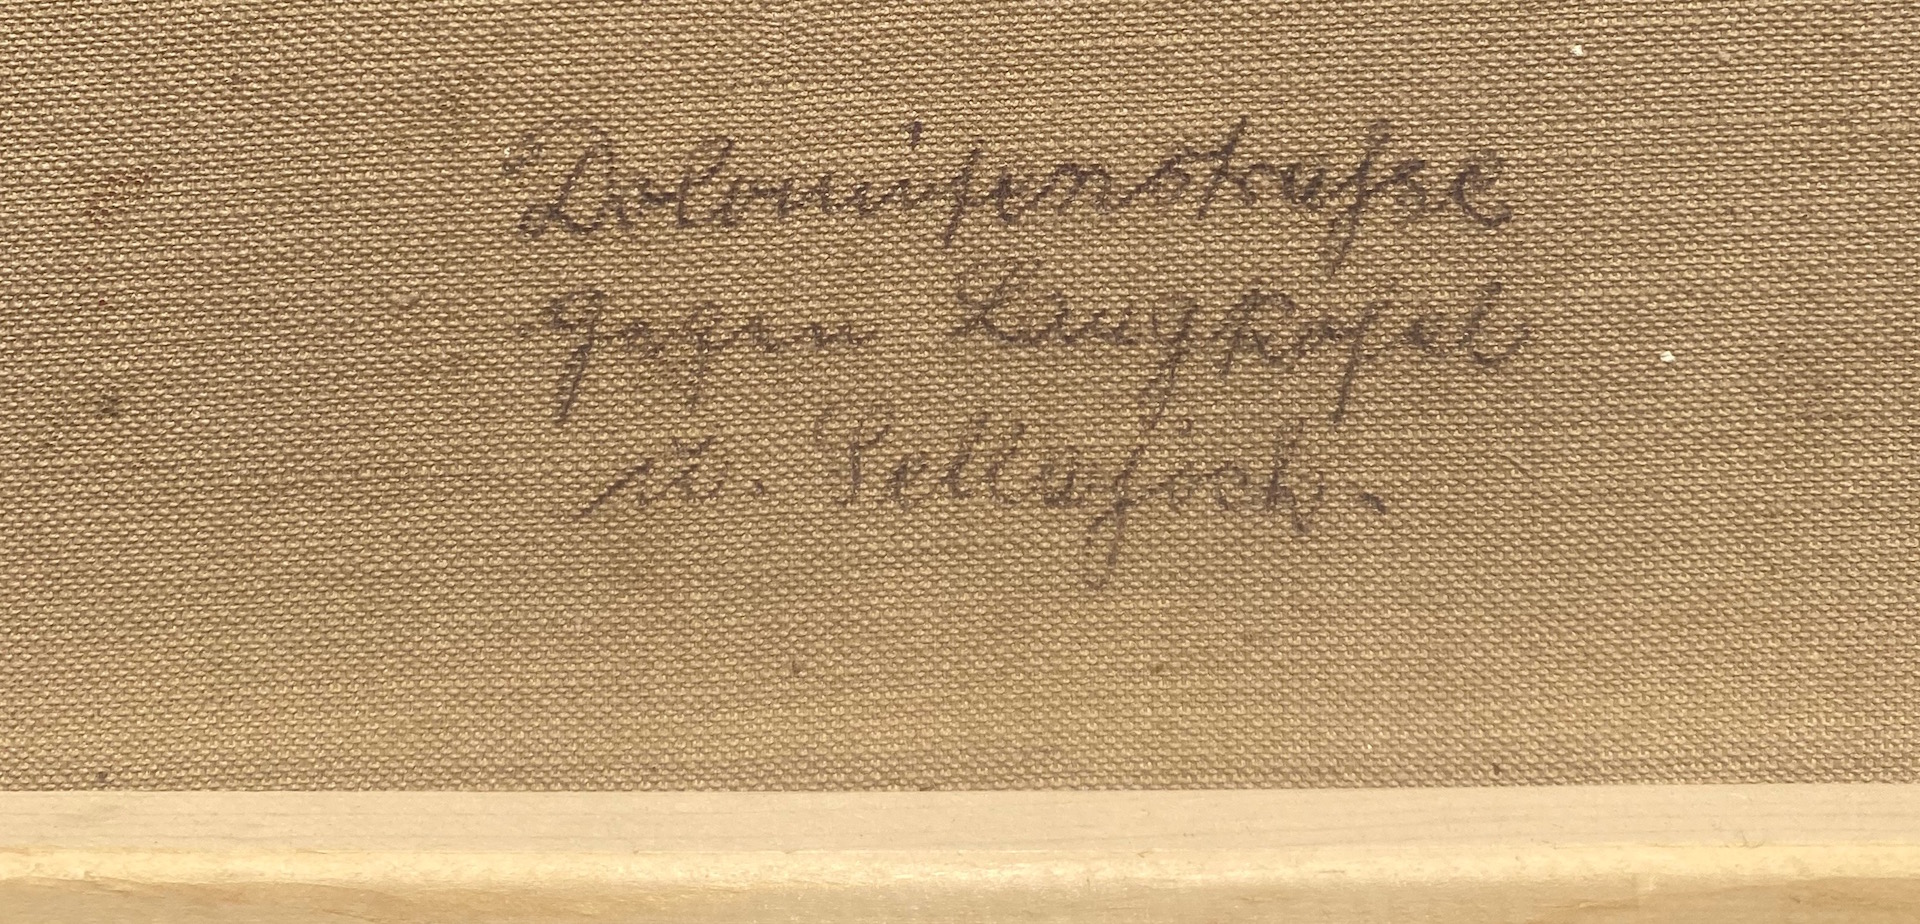 Dolomitenstraße
gegen Langkofel
u. Sellajoch.